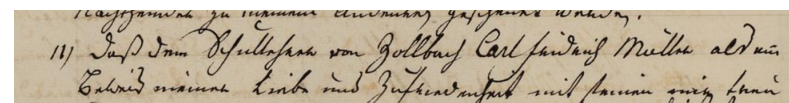 Nachstehenden zu meinem Andenken geschenkt werde.
11) Daß dem Schullehrer von Zollbach Carl Friedrich Müller als ein
Beweis meiner Liebe und Zufriedenheit mit seinen mir treu